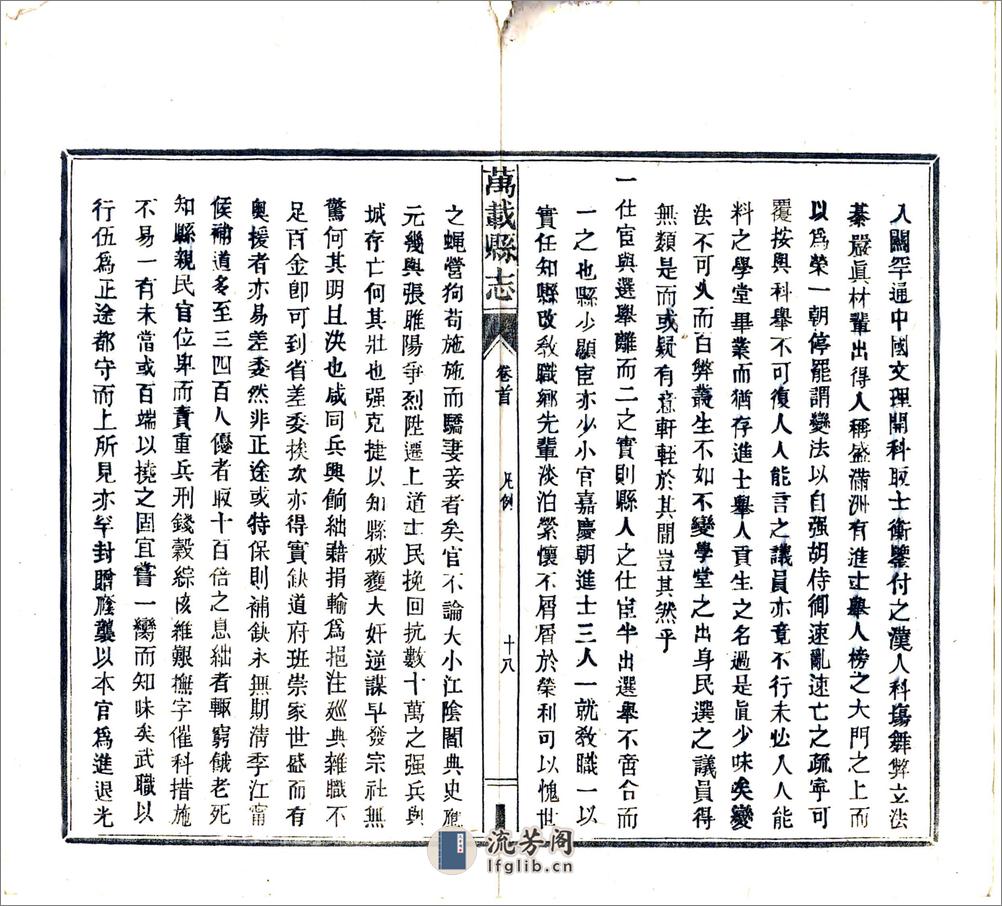 入關罕通中國文理開科取士衡鑒付之漢人科場舞弊立法
綦嚴眞材輩出得人稱盛滿洲有進士舉人榜之大門之上而
以爲榮一朝停罷謂變法以自强胡侍御速亂速亡之疏寧可
覆按輿科舉不可復人人能言之議員亦竟不行未必人人能
料之學堂畢業而猶存進士舉人貢生之名過是眞少味矣變
法不可久而百弊叢生不如不變學堂之出身民選之議員得
無類是而或疑有意軒輊於其間豈其然乎
一仕宦與選舉離而二之實則縣人之仕宦半出選舉不啻合而
一之也縣少顯宦亦少小官嘉慶朝進士三人一就敎職一以
實任知縣改敎職鄉先輩淡泊縈懷不屑屑於榮利可以愧世
萬載縣志
卷首
凡例
十八
之蝇營狗苟施施而驕妻妾者矣官不論大小江陰閻典史應
元幾與張睢陽爭烈陞遷上道士民挽回抗數十萬之强兵與
城存亡何其壯也强克捷以知縣破獲大奸逆謀早發宗社無
驚何其明且決也咸同兵興餉絀藉捐輸爲挹注巡典雜職不
足百金卽可到省差委挨次亦得實缺道府班崇家世盛而有
奧援者亦易差委然非正途或特保則補缺永無期淸季江甯
候補道多至三四百人優者取十百倍之息絀者輒窮餓老死
知縣親民官位卑而責重兵刑錢穀綜核維艱撫字催科措施
不易一有未當或百端以撓之固宜嘗一臠而知味矣武職以
行伍爲正途都守而上所見亦罕封贈廕襲以本官爲進退光
流芳阁
lfglib.cn